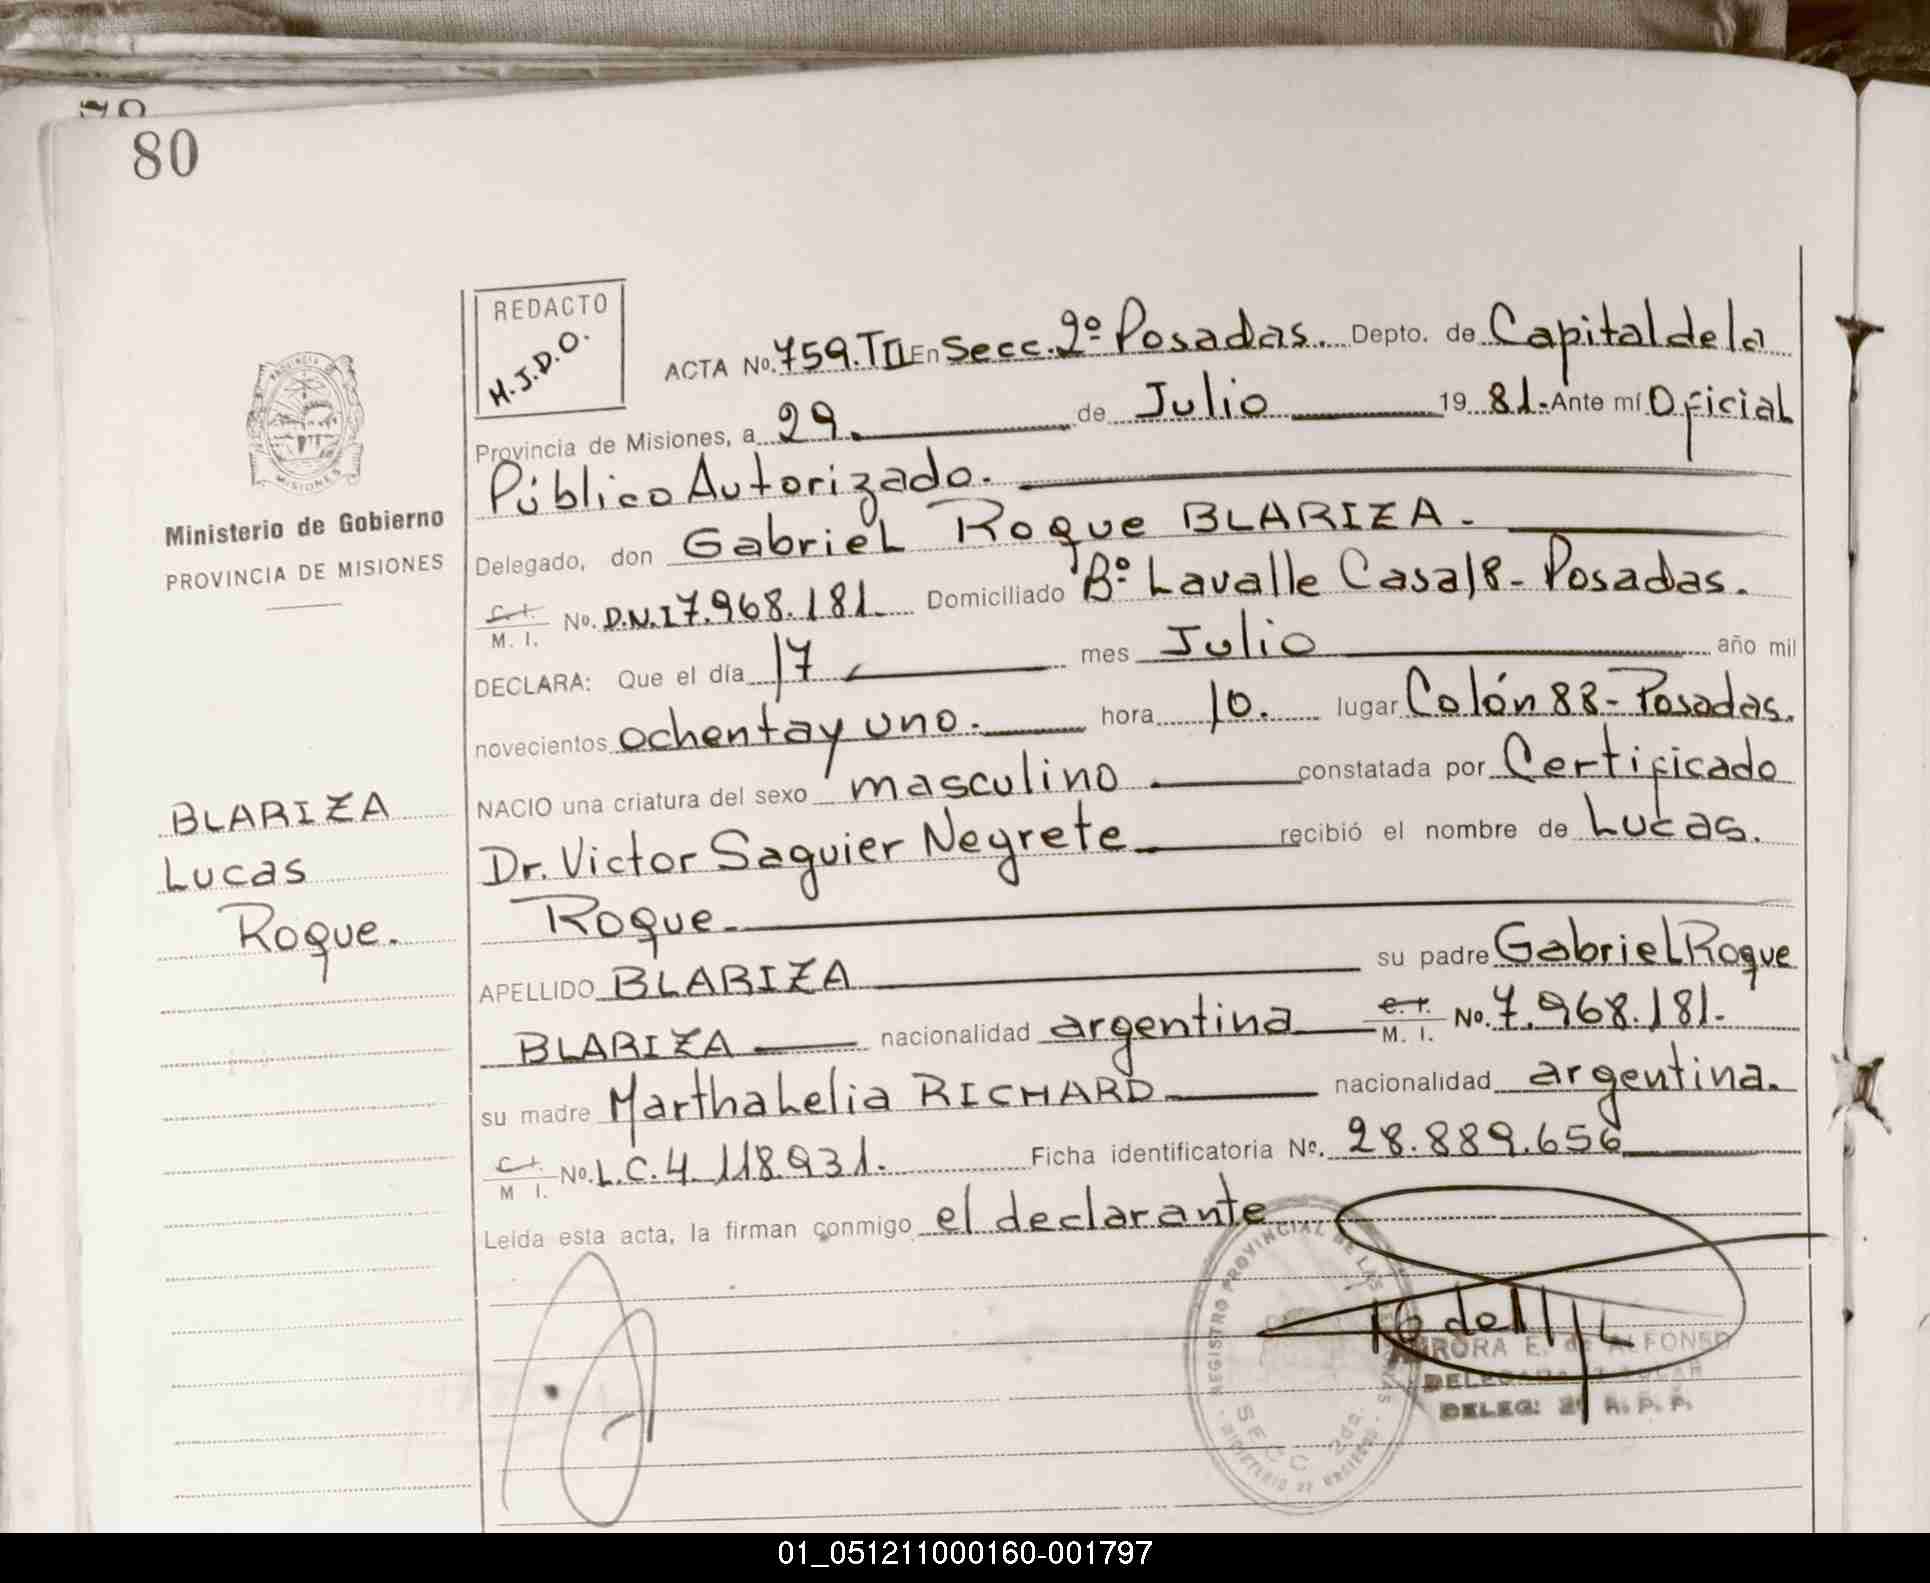 80
REDACTO
H.J.D.O.
ACTA No. 759.TII En Secc. 2º Posadas. Depto. de Capital de la
Provincia de Misiones, a 29. de Julio 1981. Ante mí Oficial
Público Autorizado.
Delegado, don Gabriel Roque BLARIZA.
C. I. / M. I. No. D.N.I 7.968.181. Domiciliado Bº Lavalle Casa 18 - Posadas.
DECLARA: Que el día 17 mes Julio año mil
novecientos ochenta y uno. hora 10. lugar Colón 88 - Posadas.
NACIO una criatura del sexo masculino constatada por Certificado
Dr. Victor Saguier Negrete recibió el nombre de Lucas.
Roque.
APELLIDO BLARIZA su padre Gabriel Roque
BLARIZA nacionalidad argentina C. I. / M. I. No. 7.968.181.
su madre Martha Lelia RICHARD nacionalidad argentina.
C. I. / M I. No. L.C. 4.118.931. Ficha identificatoria No. 28.889.656
Leída esta acta, la firman conmigo el declarante
Ministerio de Gobierno
PROVINCIA DE MISIONES
BLARIZA
Lucas
Roque.
PROVINCIA
MISIONES
REGISTRO PROVINCIAL DE LAS
SECC. 2da.
E. de ALFONSO
DELEG: 2ª R. P. P.
01_051211000160-001797